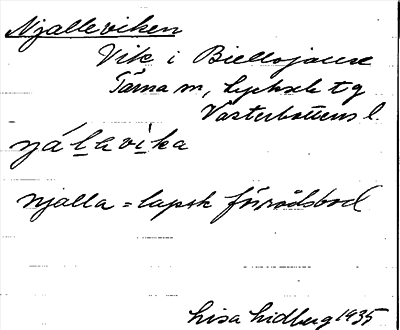 Njalleviken
Vik i Biellojaure
Tärna sn, Lycksele tg
Västerbottens l.
njálavika
njalla = lapsk förrådsbod
Lisa Lidberg 1935